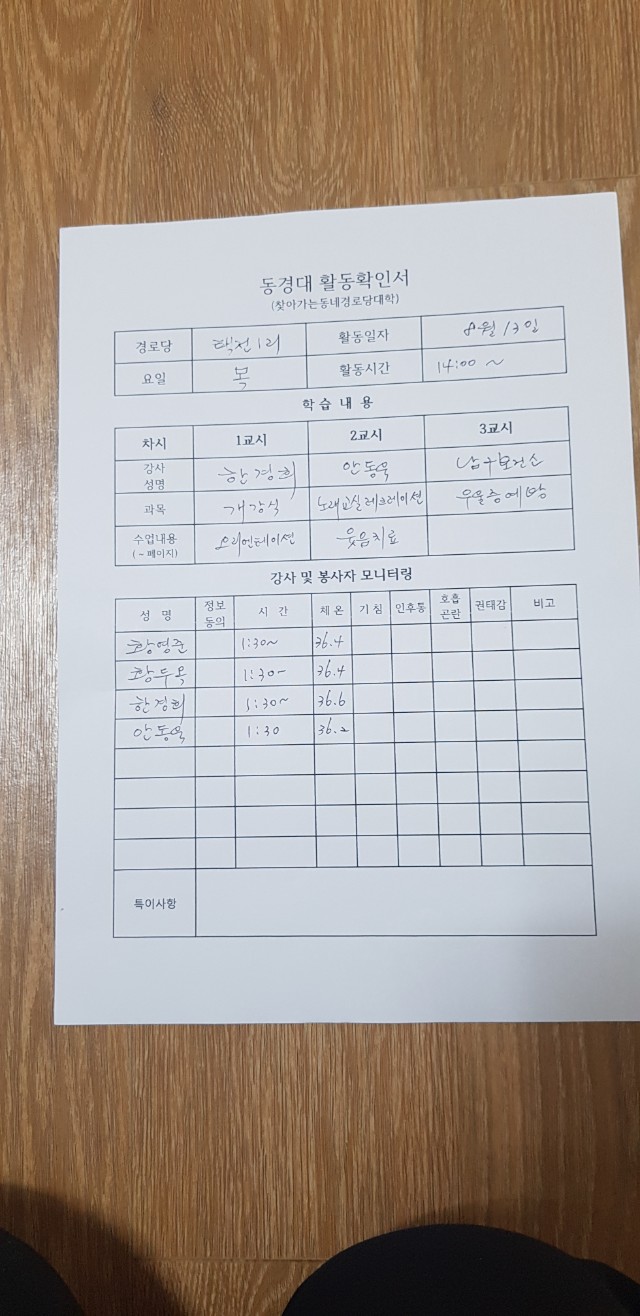 동경대 활동확인서
(찾아가는동네경로당대학)
경로당 택전1리 활동일자 8월 13일
요일 목 활동시간 14:00 ~
학 습 내 용
차시 1교시 2교시 3교시
강사 성명 한경희 안동욱 남구보건소
과목 개강식 노래교실레크레이션 우울증예방
수업내용 (~페이지) 오리엔테이션 웃음치료
강사 및 봉사자 모니터링
성 명 정보 동의 시 간 체 온 기 침 인후통 호흡 곤란 권태감 비고
황영준 1:30~ 36.4
황두옥 1:30~ 36.4
한경희 1:30~ 36.6
안동욱 1:30 36.2
특이사항